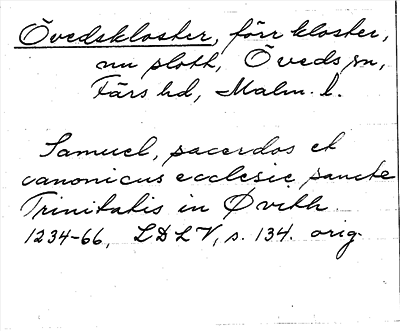 Övedskloster, förr kloster,
nu slott, Öveds sn,
Färs hd, Malm. l.
Samuel, sacerdos et
canonicus ecclesie sancte
Trinitatis in Øvith
1234-66, LDLV, s. 134. orig.